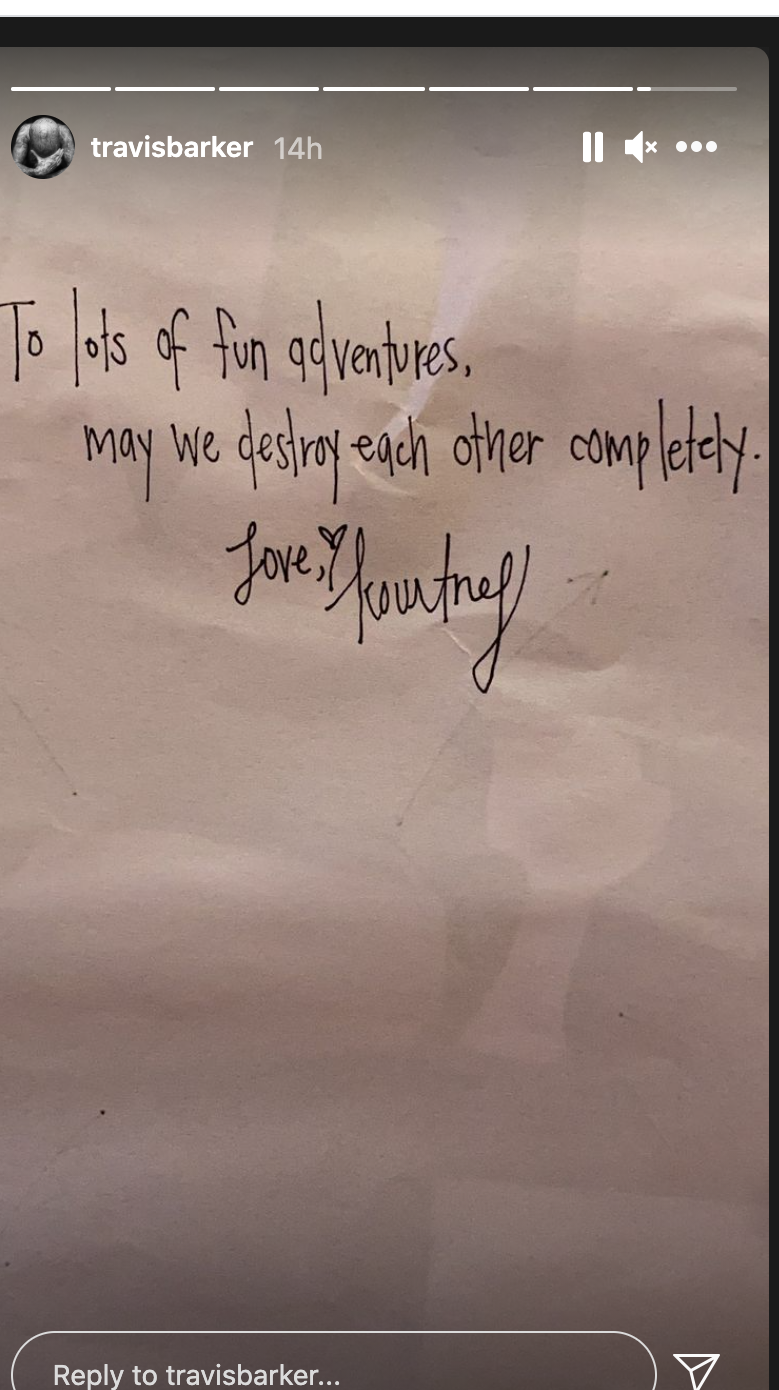 travisbarker 14h
To lots of fun adventures,
may we destroy each other completely.
Love, kourtney
Reply to travisbarker...